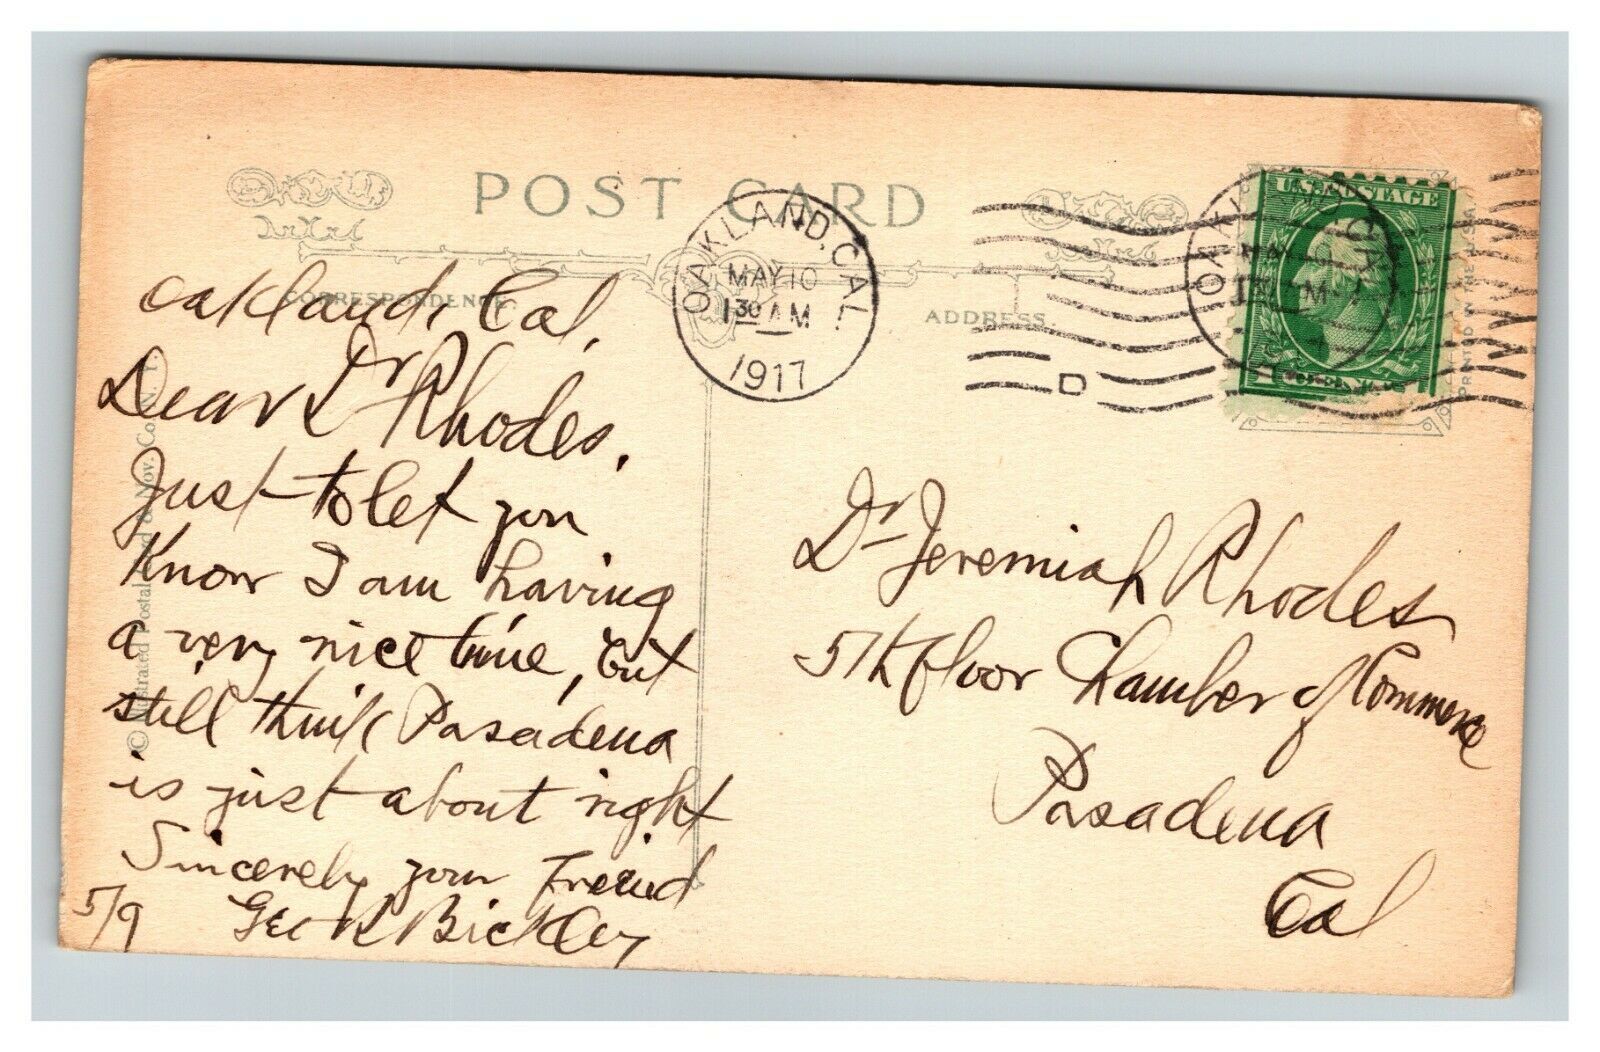 POST CARD
CORRESPONDENCE
ADDRESS
OAKLAND, CAL.
MAY 10
1 30 AM
1917
D
OAKLAND, CA
U.S. POSTAGE
PRINTED IN THE U.S.A.
Oakland, Cal,
Dear Dr Rhodes,
Just to let you
Know I am having
a very nice time, but
still think Pasadena
is just about right
Sincerely your Freind
5/9 Geo R Bickley
Dr Jeremiah Rhodes
5th floor Chamber of Commerce
Pasadena
Cal
© Illustrated Postal Card & Nov. Co., N.Y.